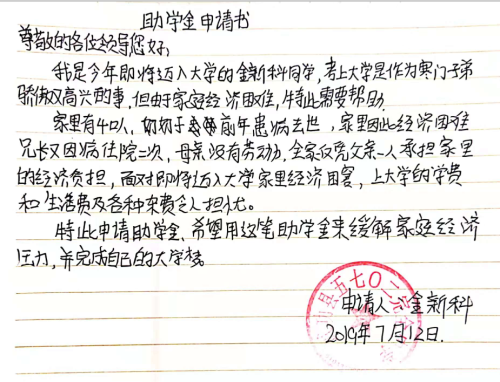 助学金申请书
尊敬的各位领导您好,
我是今年即将迈入大学的金新科同学,考上大学是作为寒门子弟
骄傲又高兴的事,但由于家庭经济困难,特此需要帮助.
家里有4口人,奶奶于前年患病去世,家里因此经济困难
兄长又因病住院二次,母亲没有劳动力,全家仅凭父亲一人承担家里
的经济负担,面对即将迈入大学家里经济困窘,上大学的学费
和生活费及各种杂费令人担忧。
特此申请助学金,希望用这笔助学金来缓解家庭经济
压力,并完成自己的大学梦.
申请人:金新科
2019年7月12日.
山县五七〇二